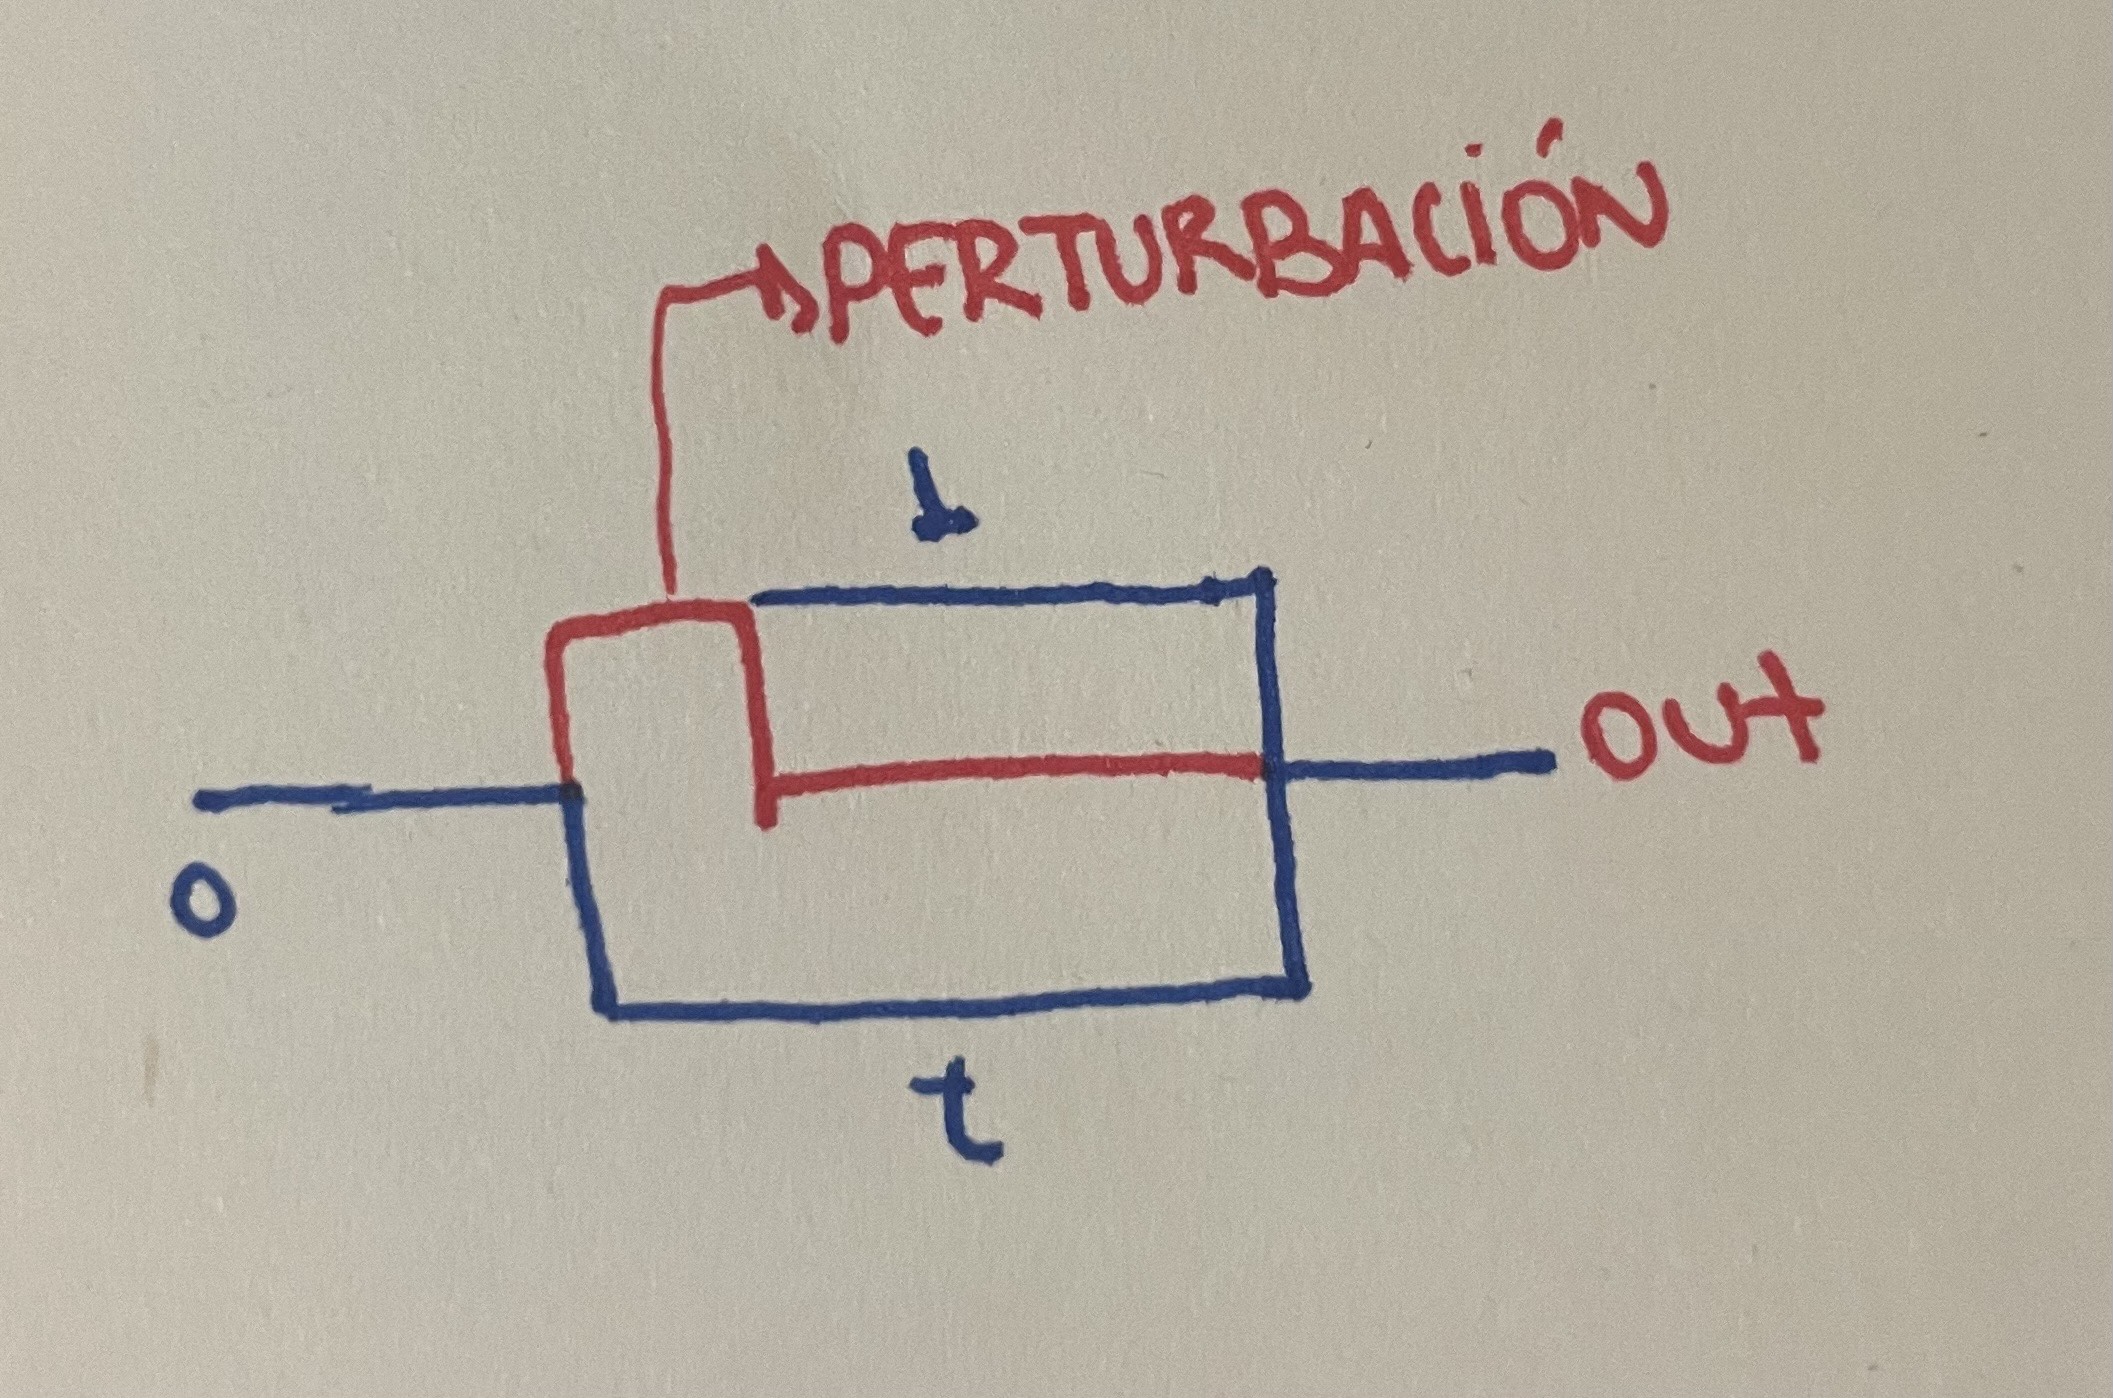 PERTURBACIÓN
1
OUT
0
t